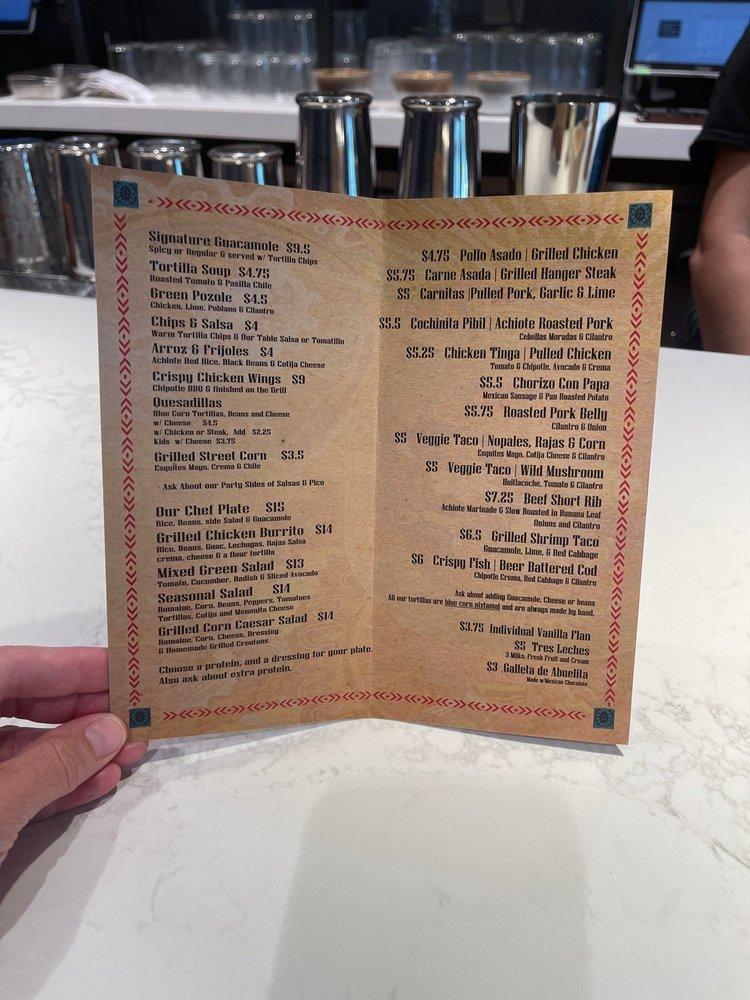 Signature Guacamole $9.5
Spicy or Regular & served w/ Tortilla Chips
Tortilla Soup $4.75
Roasted Tomato & Pasilla Chile
Green Pozole $4.5
Chicken, Lime, Poblano & Cilantro
Chips & Salsa $4
Warm Tortilla Chips & Our Table Salsa or Tomatillo
Arroz & Frijoles $4
Achiote Red Rice, Black Beans & Cotija Cheese
Crispy Chicken Wings $9
Chipotle BBQ & finished on the Grill
Quesadillas
Blue Corn Tortillas, Beans and Cheese
w/ Cheese $4.5
w/ Chicken or Steak, Add $2.25
Kids w/ Cheese $3.75
Grilled Street Corn $3.5
Esquites Mayo, Crema & Chile
Ask About our Party Sides of Salsas & Pico
Our Chef Plate $15
Rice, Beans, side Salad & Guacamole
Grilled Chicken Burrito $14
Rice, Beans, Guac, Lechugas, Rajas Salsa
crema, cheese & a flour tortilla
Mixed Green Salad $13
Tomato, Cucumber, Radish & Sliced Avocado
Seasonal Salad $14
Romaine, Corn, Beans, Peppers, Tomatoes
Tortillas, Cotija and Menonita Cheese
Grilled Corn Caesar Salad $14
Romaine, Corn, Cheese, Dressing
& Homemade Grilled Croutons
Choose a protein, and a dressing for your plate.
Also ask about extra protein.
$4.75 Pollo Asado | Grilled Chicken
$5.75 Carne Asada | Grilled Hanger Steak
$5 Carnitas |Pulled Pork, Garlic & Lime
$5.5 Cochinita Pibil | Achiote Roasted Pork
Cebollas Moradas & Cilantro
$5.25 Chicken Tinga | Pulled Chicken
Tomato & Chipotle, Avocado & Crema
$5.5 Chorizo Con Papa
Mexican Sausage & Pan Roasted Potato
$5.75 Roasted Pork Belly
Cilantro & Onion
$5 Veggie Taco | Nopales, Rajas & Corn
Esquites Mayo, Cotija Cheese & Cilantro
$5 Veggie Taco | Wild Mushroom
Huitlacoche, Tomato & Cilantro
$7.25 Beef Short Rib
Achiote Marinade & Slow Roasted in Banana Leaf
Onions and Cilantro
$6.5 Grilled Shrimp Taco
Guacamole, Lime, & Red Cabbage
$6 Crispy Fish | Beer Battered Cod
Chipotle Crema, Red Cabbage & Cilantro
Ask about adding Guacamole, Cheese or beans
All our tortillas are blue corn nixtamal and are always made by hand.
$3.75 Individual Vanilla Flan
$5 Tres Leches
3 Milks, Fresh Fruit and Cream
$3 Galleta de Abuelita
Made w/Mexican Chocolate